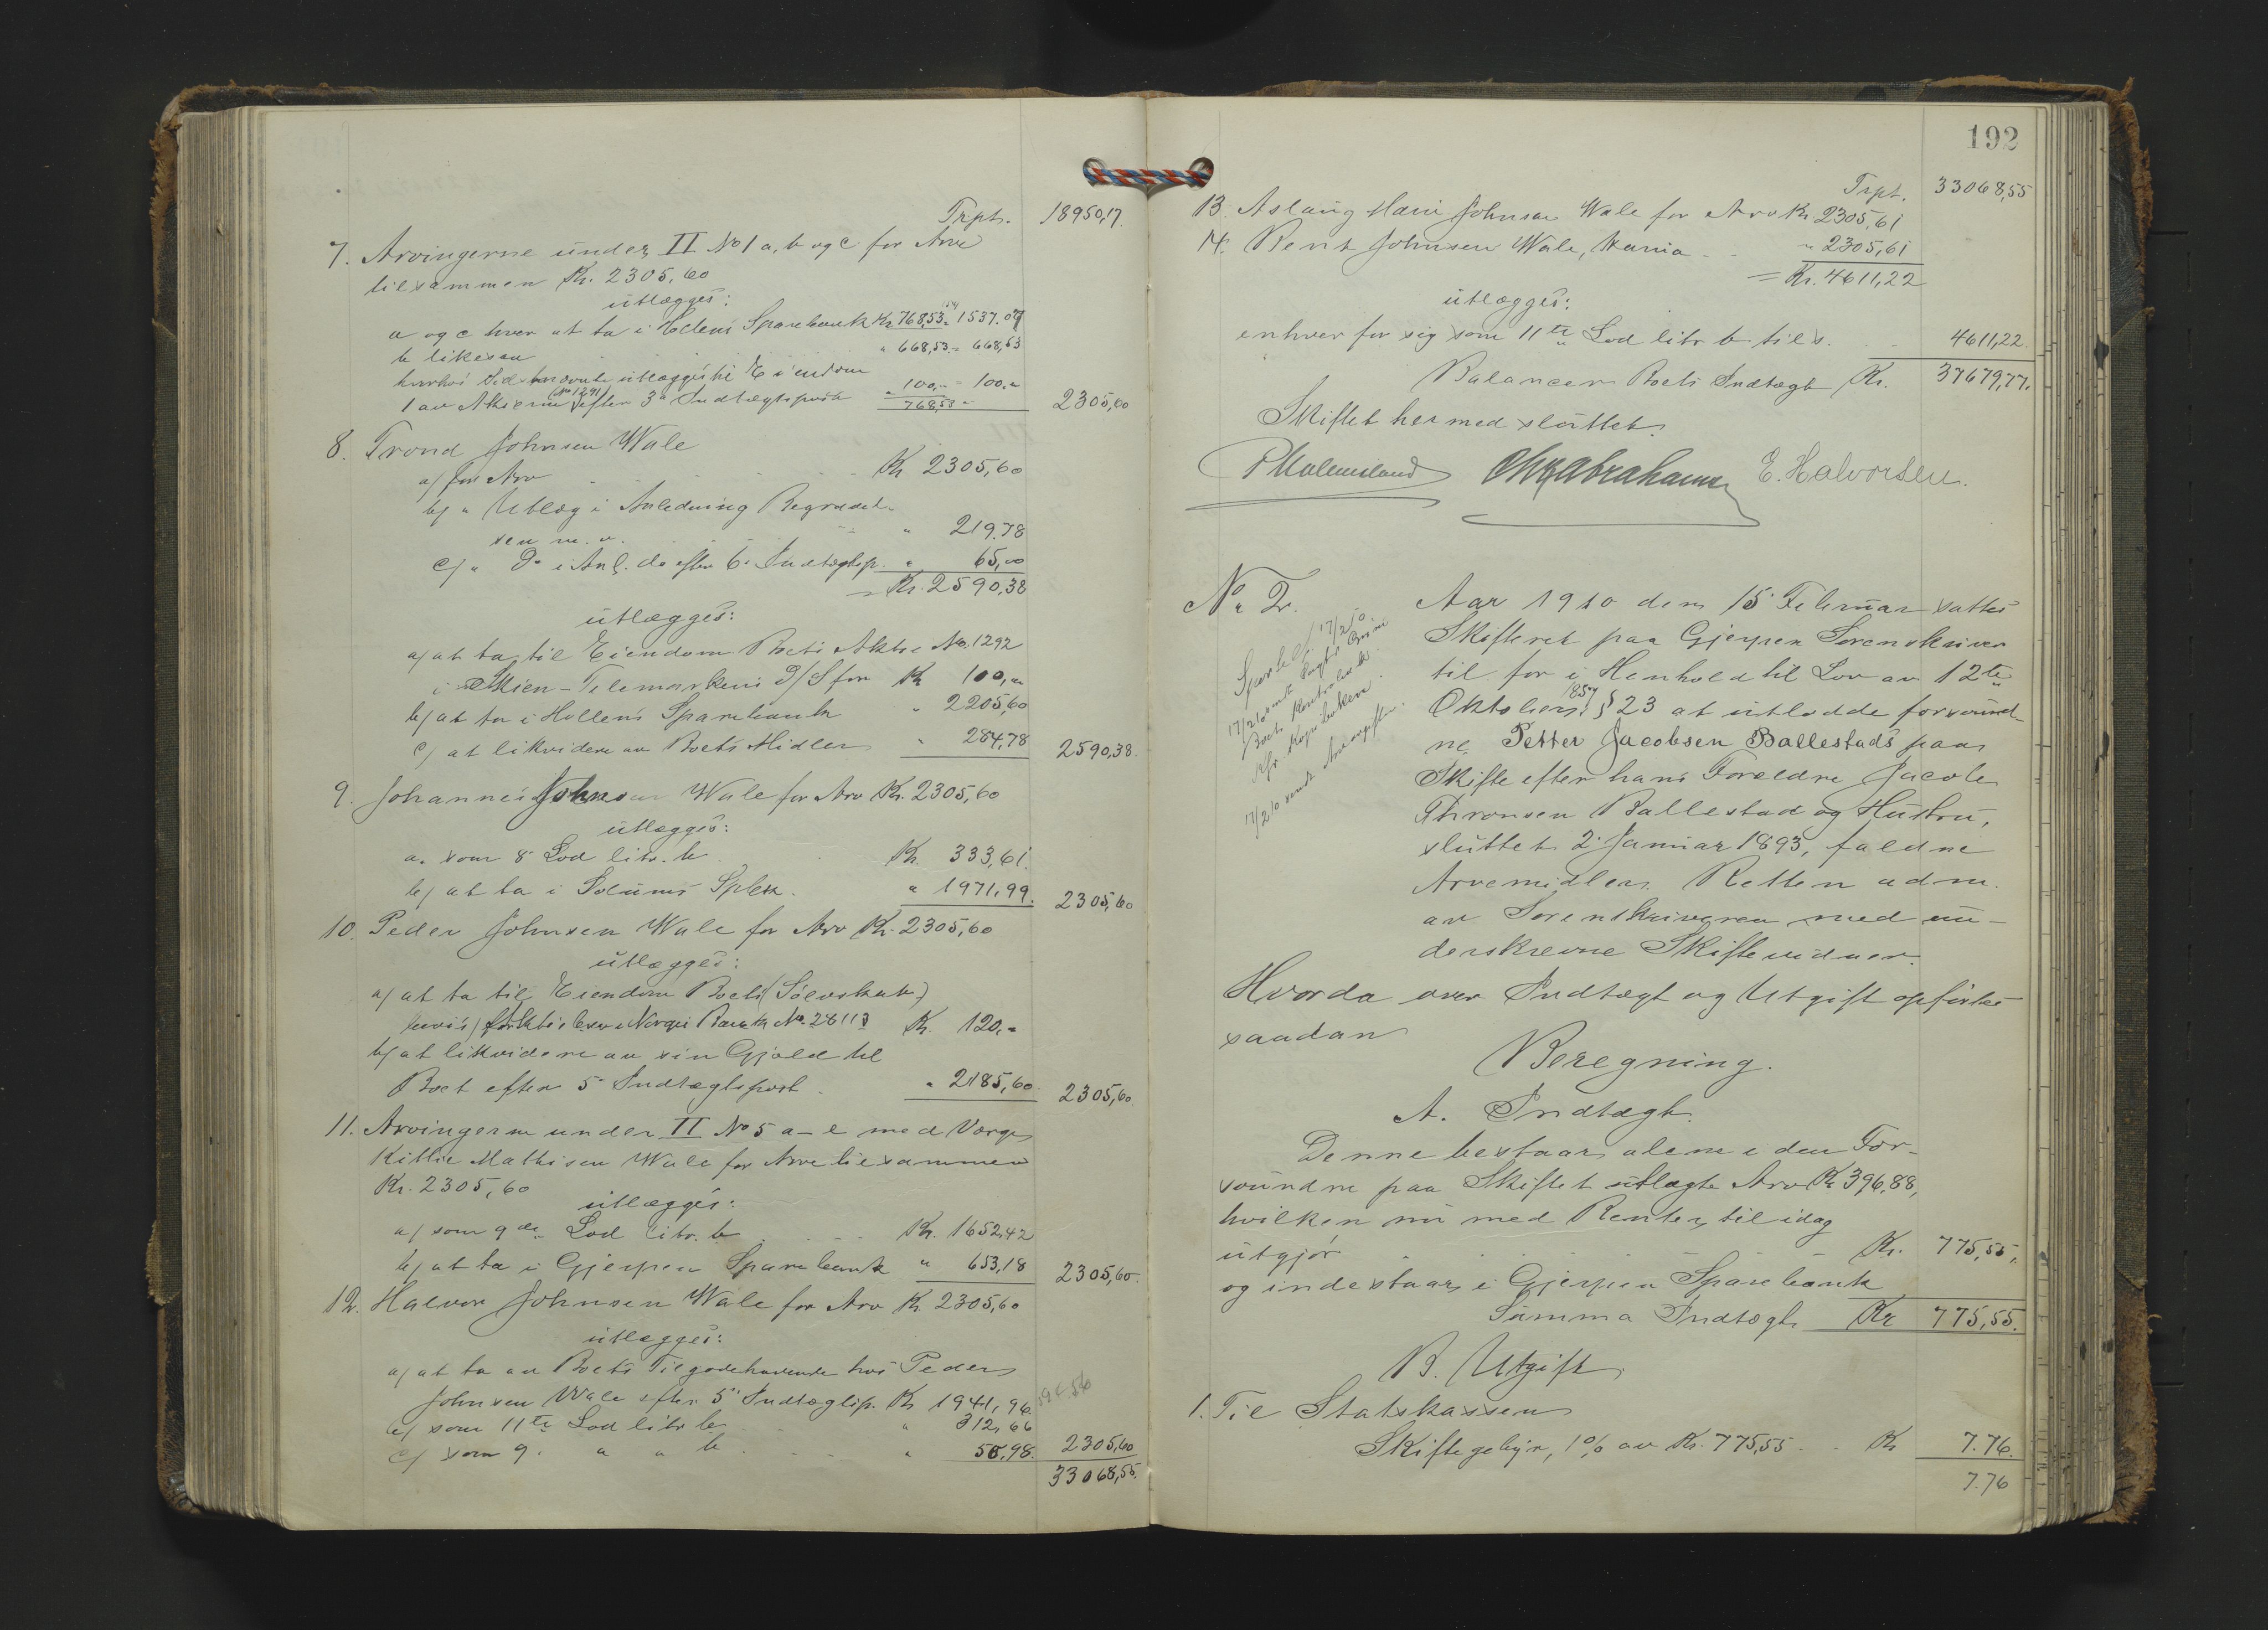 Trpt. 18950,17.
7. Arvingerne under II No 1 a, b og c for Arv
tilsammen Kr. 2305,60
utlægges:
a og c hver at ta i Hollens Sparebank Kr 768,53 = 1537.07
b likesaa " 668,53 = 668,53
utlægges til Eiendom
1 av Aktierne (No 1291) efter 3die Indtægtspost " 100,- = 100,-
768,53 " 2305,60
8. Trond Johnsen Wale
a/ for Arv Kr 2305,60
b/ " Utlæg i Anledning Begravel-
sen m. v. " 219.78
c/ " Do i Anl. do efter 6. Indtægtsp. " 65,00
= Kr. 2590,38
utlægges:
a/ at ta til Eiendom Boets Aktie No. 1292
i Skien-Telemarkens D/S for Kr 100,-
b/ at ta i Hollens Sparebank " 2205,60
c/ at likvidere av Boets Midler " 284,78 2590,38.
9. Johannes Johnsen Wale for Arv Kr. 2305,60
utlægges:
a. som 8. Lod litr. b Kr. 333,61.
b/ at ta i Solums Spbk. " 1971,99. 2305,60
10. Peder Johnsen Wale for Arv Kr. 2305,60
utlægges:
a/ at ta til Eiendom Boets (Sølvskab)
bevis Norges Bank No. 28113 Kr. 120,-
b/ at likvidere av sin Gjæld til
Boet efter 5. Indtægtspost. " 2185,60. 2305,60
11. Arvingerne under II No 5 a-e med Værge
Kittil Mathisen Wale for Arv tilsammen
Kr. 2305,60
utlægges:
a/ som 9de Lod litr. b Kr. 1652,42
b/ at ta i Gjerpen Sparebank " 653,18 2305,60.
12. Halvor Johnsen Wale for Arv Kr 2305,60
utlægges:
a/ at ta av Boets Tilgodehavende hos Peder
Johnsen Wale efter 5. Indtægtsp. Kr 1941,96.
b/ som 11te Lod litr b " 312,66
c/ som 9. " " b " 50,98. 2305,60
33068,55.
192
Trpt. 33068,55
13. Aslaug Marie Johnsen Wale for Arv Kr 2305,61
14. Bent Johnsen Wale, " 2305,61
= Kr. 4611,22
utlægges:
enhver for sig som 11te Lod litr b tils. 4611,22.
Balancerer Boets Indtægt Kr. 37679,77.
Skiftet hermed sluttet.
Abrahams E. Halvorsen.
No 2.
17/2 10 sendt Arveavgiften.
Aar 1910 den 15 Februar sattes
Skifteret paa Gjerpen Sorenskriver
til for i Henhold til Lov av 12te
Oktober 1857 § 23 at utlodde forsvund-
ne Petter Jacobsen Ballestads paa
Skifte efter hans Forældre Jacob
Thronsen Ballestad og Hustru,
sluttet 2. Januar 1893, faldne
Arvemidler. Retten adm.
av Sorenskriveren med un-
derskrevne Skiftevidner.
Hvorda over Indtægt og Utgift opførtes
saadan
Beregning.
A. Indtægt.
Denne bestaar alene i den For-
svundne paa Skiftet utlagte Arv Kr 396,88,
hvilken nu med Renter til idag
utgjør Kr. 775,55,
og indestaar i Gjerpen Sparebank
Summa Indtægt Kr 775,55.
B. Utgift.
1. Til Statskassen
Skiftegebyr, 1% av Kr. 775,55 Kr 7.76.
7.76